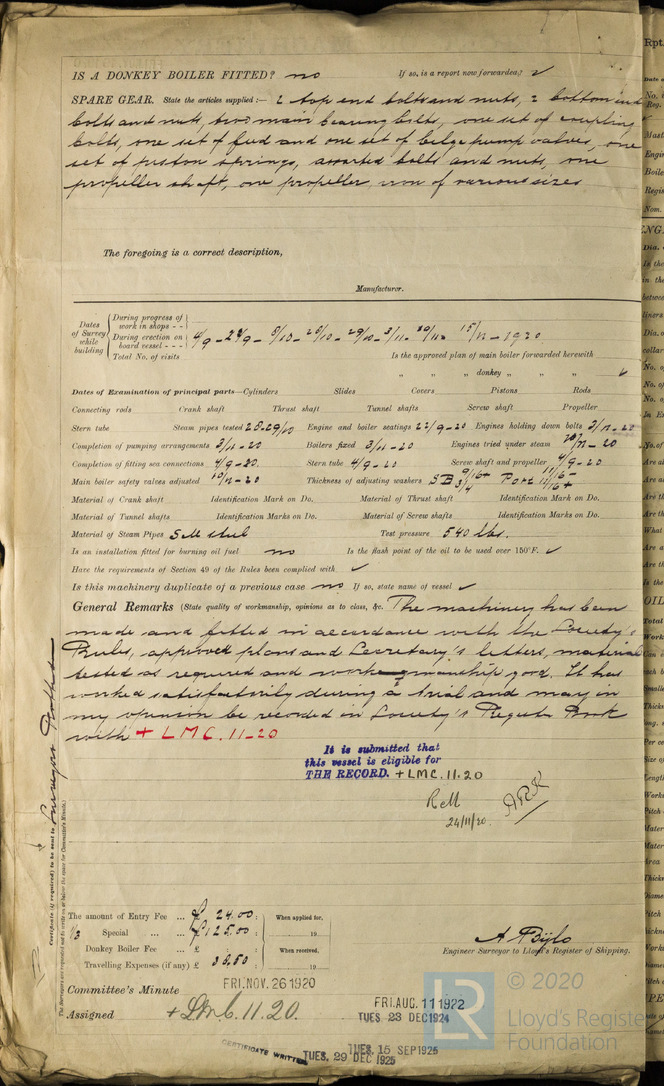 IS A DONKEY BOILER FITTED? no If so, is a report now forwarded? ✓
SPARE GEAR. State the articles supplied:— 2 top end bolts and nuts, 2 bottom end
bolts and nuts, two main bearing bolts, one set of coupling
bolts, one set of feed and one set of belge pump valves, one
set of piston springs, assorted bolts and nuts, one
propeller shaft, one propeller, iron of various sizes
The foregoing is a correct description,
Manufacturer.
Dates of Survey while building
During progress of work in shops - -
During erection on board vessel - - -
Total No. of visits
Is the approved plan of main boiler forwarded herewith
" " " donkey " " "
Dates of Examination of principal parts—Cylinders Slides Covers Pistons Rods
Connecting rods Crank shaft Thrust shaft Tunnel shafts Screw shaft Propeller
Stern tube Steam pipes tested 28-29/10 Engine and boiler seatings 22/9-20 Engines holding down bolts 3/11-20
Completion of pumping arrangements 3/11-20 Boilers fixed 3/11-20 Engines tried under steam
Completion of fitting sea connections 4/9-20. Stern tube 4/9-20 Screw shaft and propeller 4/9-20
Main boiler safety valves adjusted 10/11-20 Thickness of adjusting washers SB Port
Material of Crank shaft Identification Mark on Do. Material of Thrust shaft Identification Mark on Do.
Material of Tunnel shafts Identification Marks on Do. Material of Screw shafts Identification Marks on Do.
Material of Steam Pipes S.M. steel Test pressure 540 lbs.
Is an installation fitted for burning oil fuel no Is the flash point of the oil to be used over 150°F. ✓
Have the requirements of Section 49 of the Rules been complied with ✓
Is this machinery duplicate of a previous case no If so, state name of vessel ✓
General Remarks (State quality of workmanship, opinions as to class, &c. The machinery has been
made and fitted in accordance with the Society's
Rules, approved plans and Secretary's letters, material
tested as required and workmanship good. It has
worked satisfactorily during a trial and may in
my opinion be recorded in Society's Register Book
with + LMC. 11-20
It is submitted that
this vessel is eligible for
THE RECORD. + LMC. 11.20
24/11/20.
Certificate (if required) to be sent to
The Surveyors are requested not to write on or below the space for Committee's Minute.
The amount of Entry Fee ... £ 24.00 : When applied for,
1/3 Special ... ... £ 125.00 : 19
Donkey Boiler Fee ... £ : : When received,
Travelling Expenses (if any) £ 38.50 19
A Bijlo
Engineer Surveyor to Lloyd's Register of Shipping.
Committee's Minute FRI. NOV. 26 1920
Assigned + LMC. 11.20.
FRI. AUG. 11 1922
TUES. 23 DEC 1924
CERTIFICATE WRITTEN
TUES. 15 SEP 1925
TUES. 29 DEC 1925
LR
© 2020
Lloyd's Register
Foundation
Rpt.